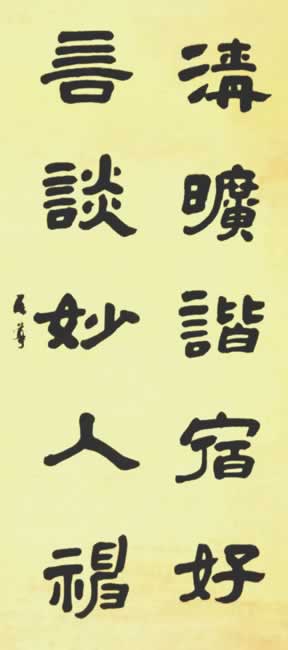 清曠諧宿好
言談妙人